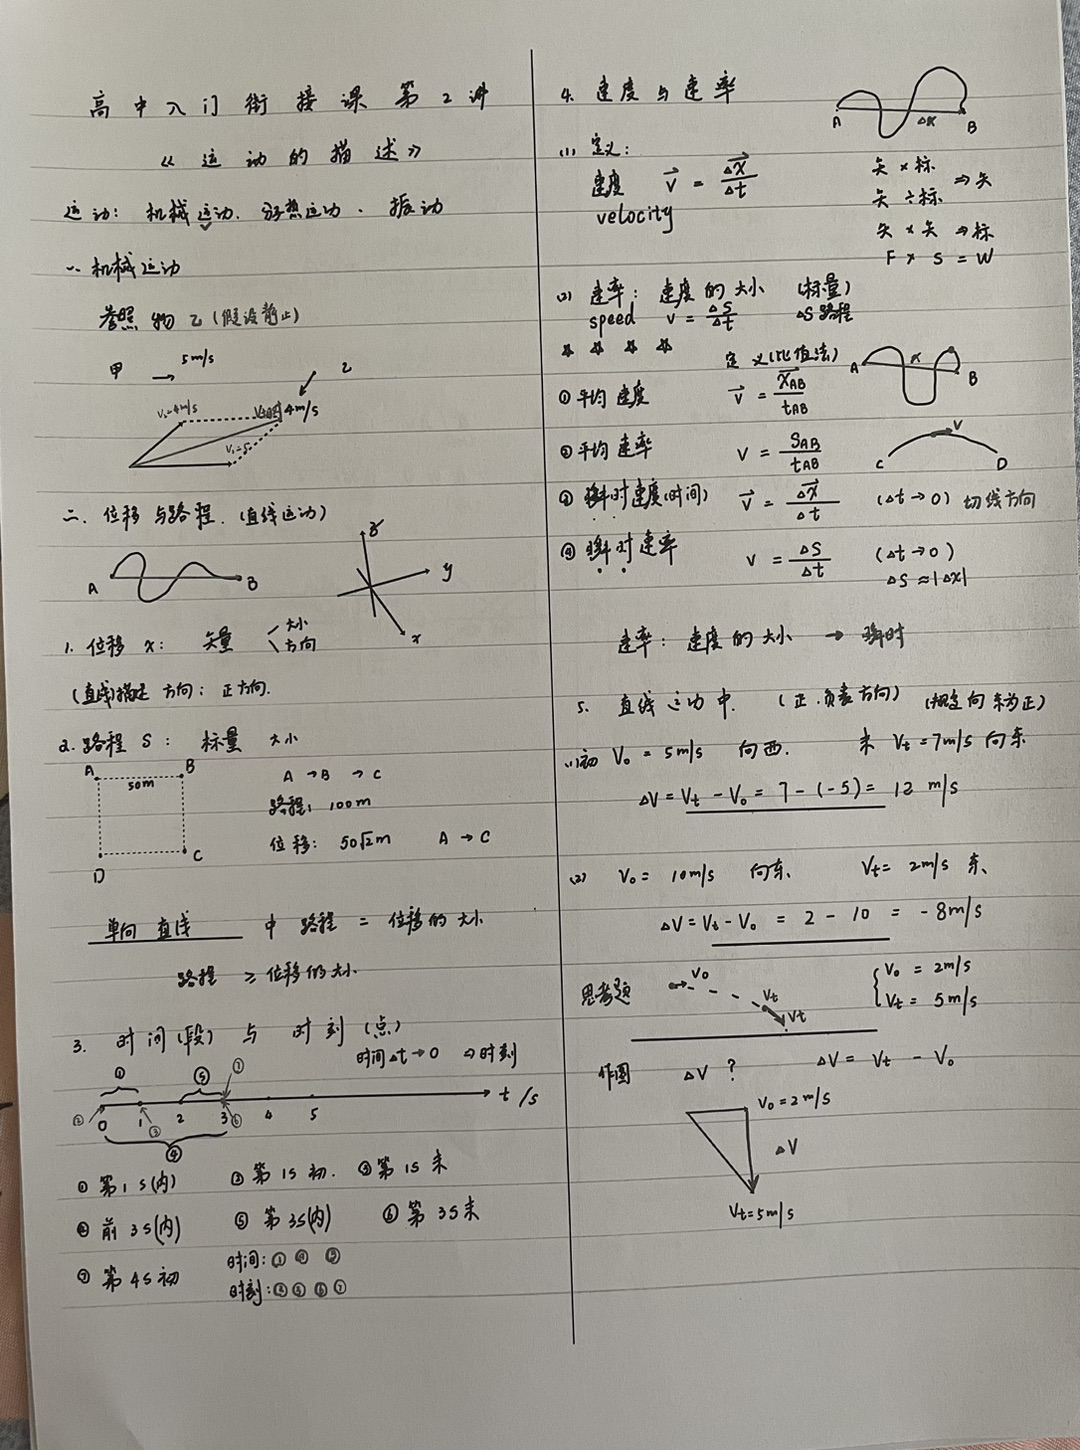 高中入门衔接课第2讲
《运动的描述》
运动: 机械运动. 分子热运动. 振动
一. 机械运动
参照物乙(假设静止)
甲 5m/s 乙
V₂=4m/s 4m/s
V₁=5
二. 位移与路程. (直线运动)
A B
z y x
1. 位移 x: 矢量 大小 方向
(直线)描述 方向: 正方向.
2. 路程 S: 标量 大小
A B
50m
D C
A→B→C
路程: 100m
位移: 50√2m A→C
单向直线 中 路程 = 位移的大小
路程 ≥ 位移的大小
3. 时间(段) 与 时刻(点)
时间Δt→0 ⇒时刻
① ⑤ ⑦
0 1 2 3 4 5 t/s
② ③ ⑥
④
① 第1s(内) ② 第1s初. ③ 第1s末
④ 前3s(内) ⑤ 第3s(内) ⑥ 第3s末
⑦ 第4s初
时间: ① ④ ⑤
时刻:
4. 速度与速率
A Δx B
(1) 定义:
速度 v⃗ = Δx⃗/Δt
velocity
矢×标
矢÷标 ⇒矢
矢×矢 ⇒标
F × S = W
(2) 速率: 速度的大小 (标量)
speed v = ΔS/Δt ΔS路程
☆ ☆ ☆ ☆
定义(比值法)
A x B
① 平均速度 v⃗ = x⃗AB/tAB
② 平均速率 v = SAB/tAB
C V D
③ 瞬时速度(时间) v⃗ = Δx⃗/Δt (Δt→0) 切线方向
④ 瞬时速率 v = ΔS/Δt (Δt→0)
ΔS≈|Δx|
速率: 速度的大小 → 瞬时
5. 直线运动中. (正.负表方向) (规定向东为正)
(1)初 V₀ = 5m/s 向西. 末 Vt = 7m/s 向东
ΔV = Vt - V₀ = 7 - (-5) = 12 m/s
(2) V₀ = 10m/s 向东、 Vt = 2m/s 东、
ΔV = Vt - V₀ = 2 - 10 = -8m/s
思考题 V₀ Vt Vt
V₀ = 2m/s
Vt = 5m/s
作图 ΔV ? ΔV = Vt - V₀
V₀ = 2m/s
ΔV
Vt = 5m/s